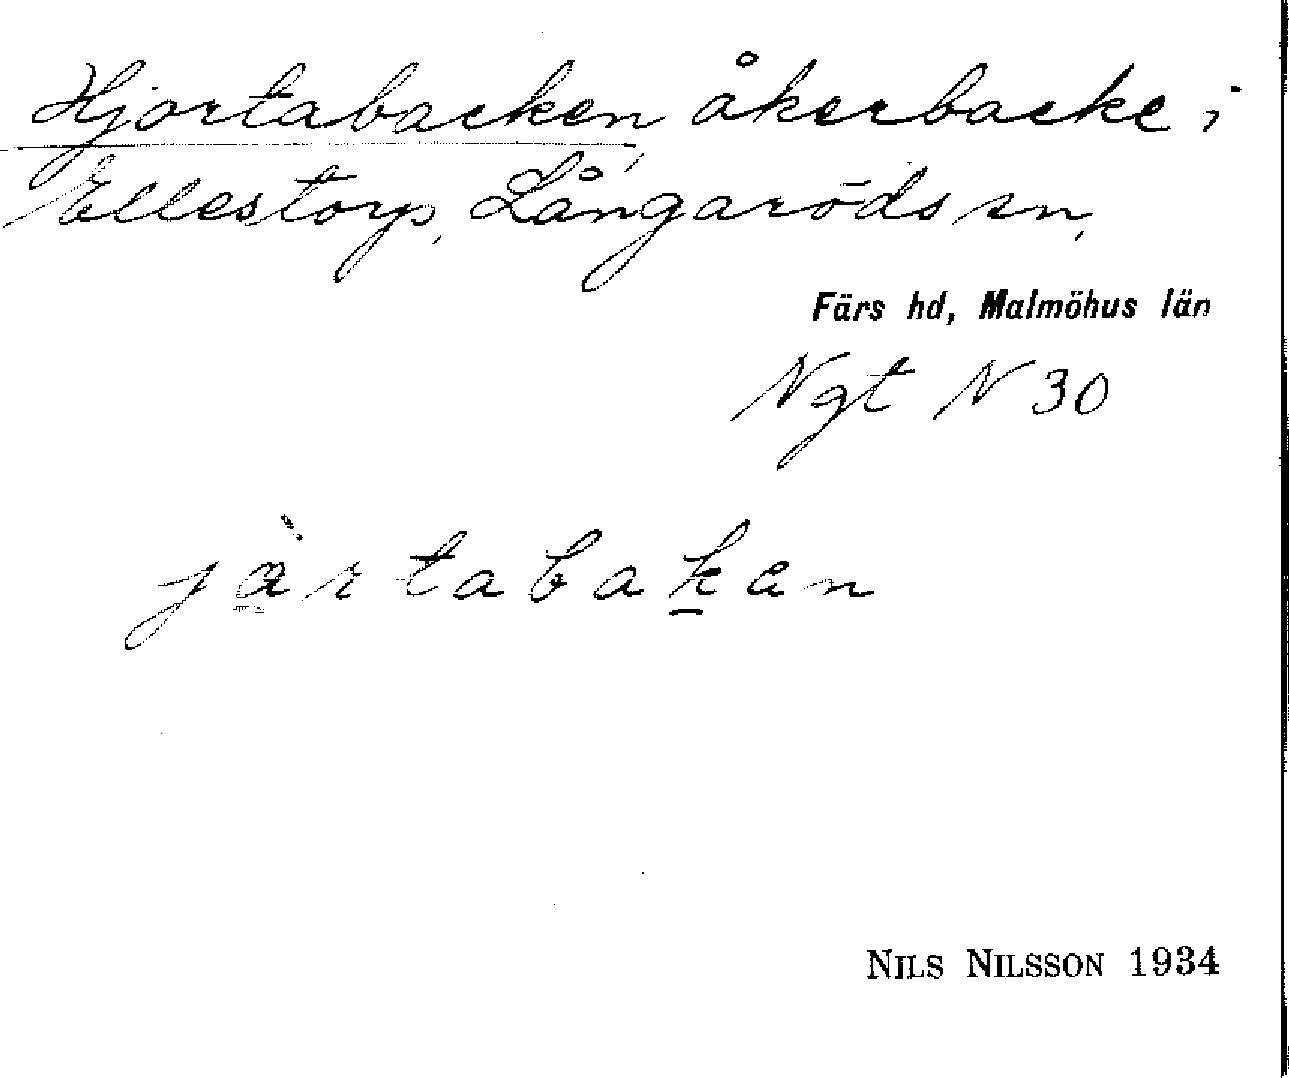 Hjortabacken, åkerbacke i
Ellestorp, Långaröds sn,
Färs hd, Malmöhus län
Ngt N 30
järtabakan
NILS NILSSON 1934